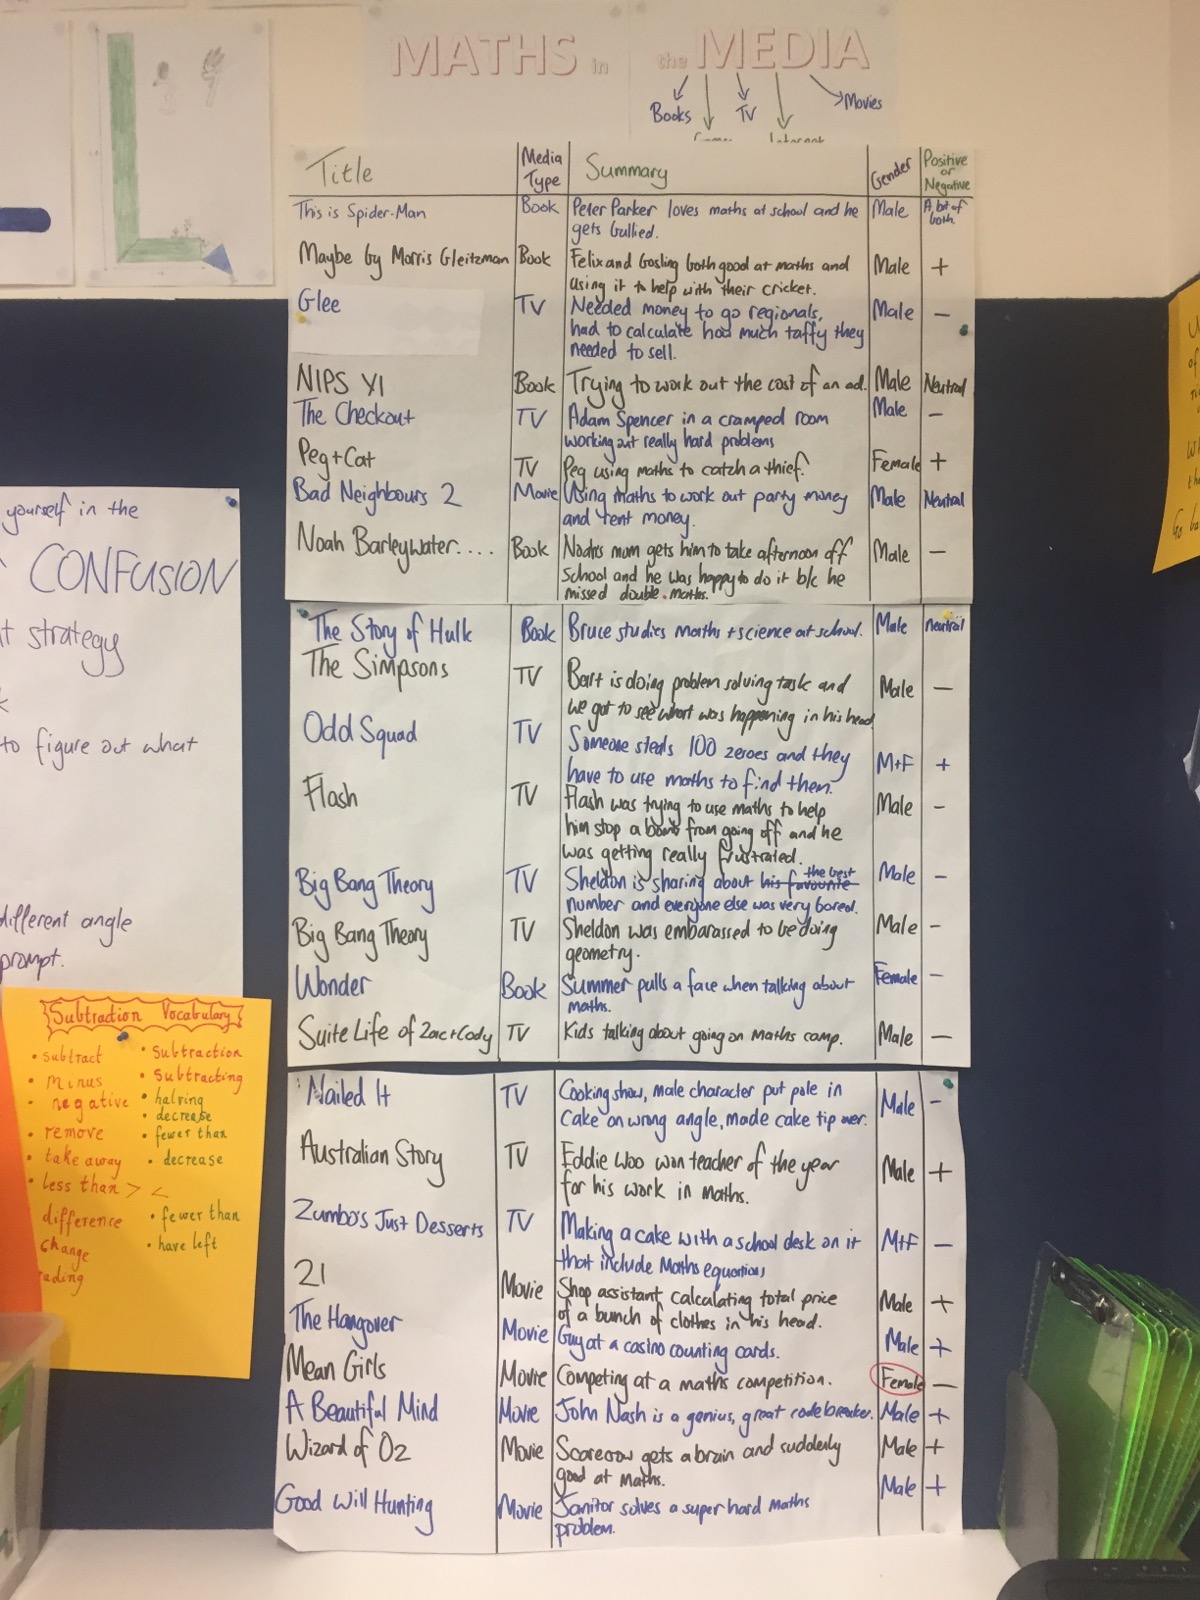 MATHS in the MEDIA
Books TV Movies
Title Media Type Summary Gender Positive or Negative
This is Spider-Man Book Peter Parker loves maths at school and he Male A bit of both
gets bullied.
Maybe by Morris Gleitzman Book Felix and Gosling both good at maths and Male +
using it to help with their cricket.
Glee TV Needed money to go regionals, Male -
had to calculate how much taffy they
needed to sell.
NIPS XI Book Trying to work out the cost of an ad. Male Neutral
The Checkout TV Adam Spencer in a cramped room Male -
working out really hard problems
Peg+Cat TV Peg using maths to catch a thief. Female +
Bad Neighbours 2 Movie Using maths to work out party money Male Neutral
and rent money.
Noah Barleywater.... Book Noah's mum gets him to take afternoon off Male -
school and he was happy to do it b/c he
missed double maths.
The Story of Hulk Book Bruce studies maths + science at school. Male neutral
The Simpsons TV Bart is doing problem solving task and Male -
we got to see what was happening in his head
Odd Squad TV Someone steals 100 zeroes and they M+F +
have to use maths to find them.
Flash TV Flash was trying to use maths to help Male -
him stop a bomb from going off and he
was getting really frustrated.
Big Bang Theory TV Sheldon is sharing about his favourite the best Male -
number and everyone else was very bored.
Big Bang Theory TV Sheldon was embarassed to be doing Male -
geometry.
Wonder Book Summer pulls a face when talking about Female -
maths.
Suite Life of Zac+Cody TV Kids talking about going on maths camp. Male -
Nailed It TV Cooking show, male character put pole in Male -
Cake on wrong angle, made cake tip over.
Australian Story TV Eddie Woo won teacher of the year Male +
for his work in maths.
Zumbo's Just Desserts TV Making a cake with a school desk on it M+F -
that include Maths equations
21 Movie Shop assistant calculating total price Male +
of a bunch of clothes in his head.
The Hangover Movie Guy at a casino counting cards. Male +
Mean Girls Movie Competing at a maths competition. Female -
A Beautiful Mind Movie John Nash is a genius, great codebreaker. Male +
Wizard of Oz Movie Scarecrow gets a brain and suddenly Male +
good at maths.
Good Will Hunting Movie Janitor solves a super hard maths Male +
problem.
yourself in the
CONFUSION
strategy
to figure out what
different angle
prompt.
Subtraction Vocabulary
• subtract
• minus
• negative
• remove
• take away
• less than > <
difference
change
• subtraction
• subtracting
• halving
• decrease
• fewer than
• decrease
• fewer than
• have left